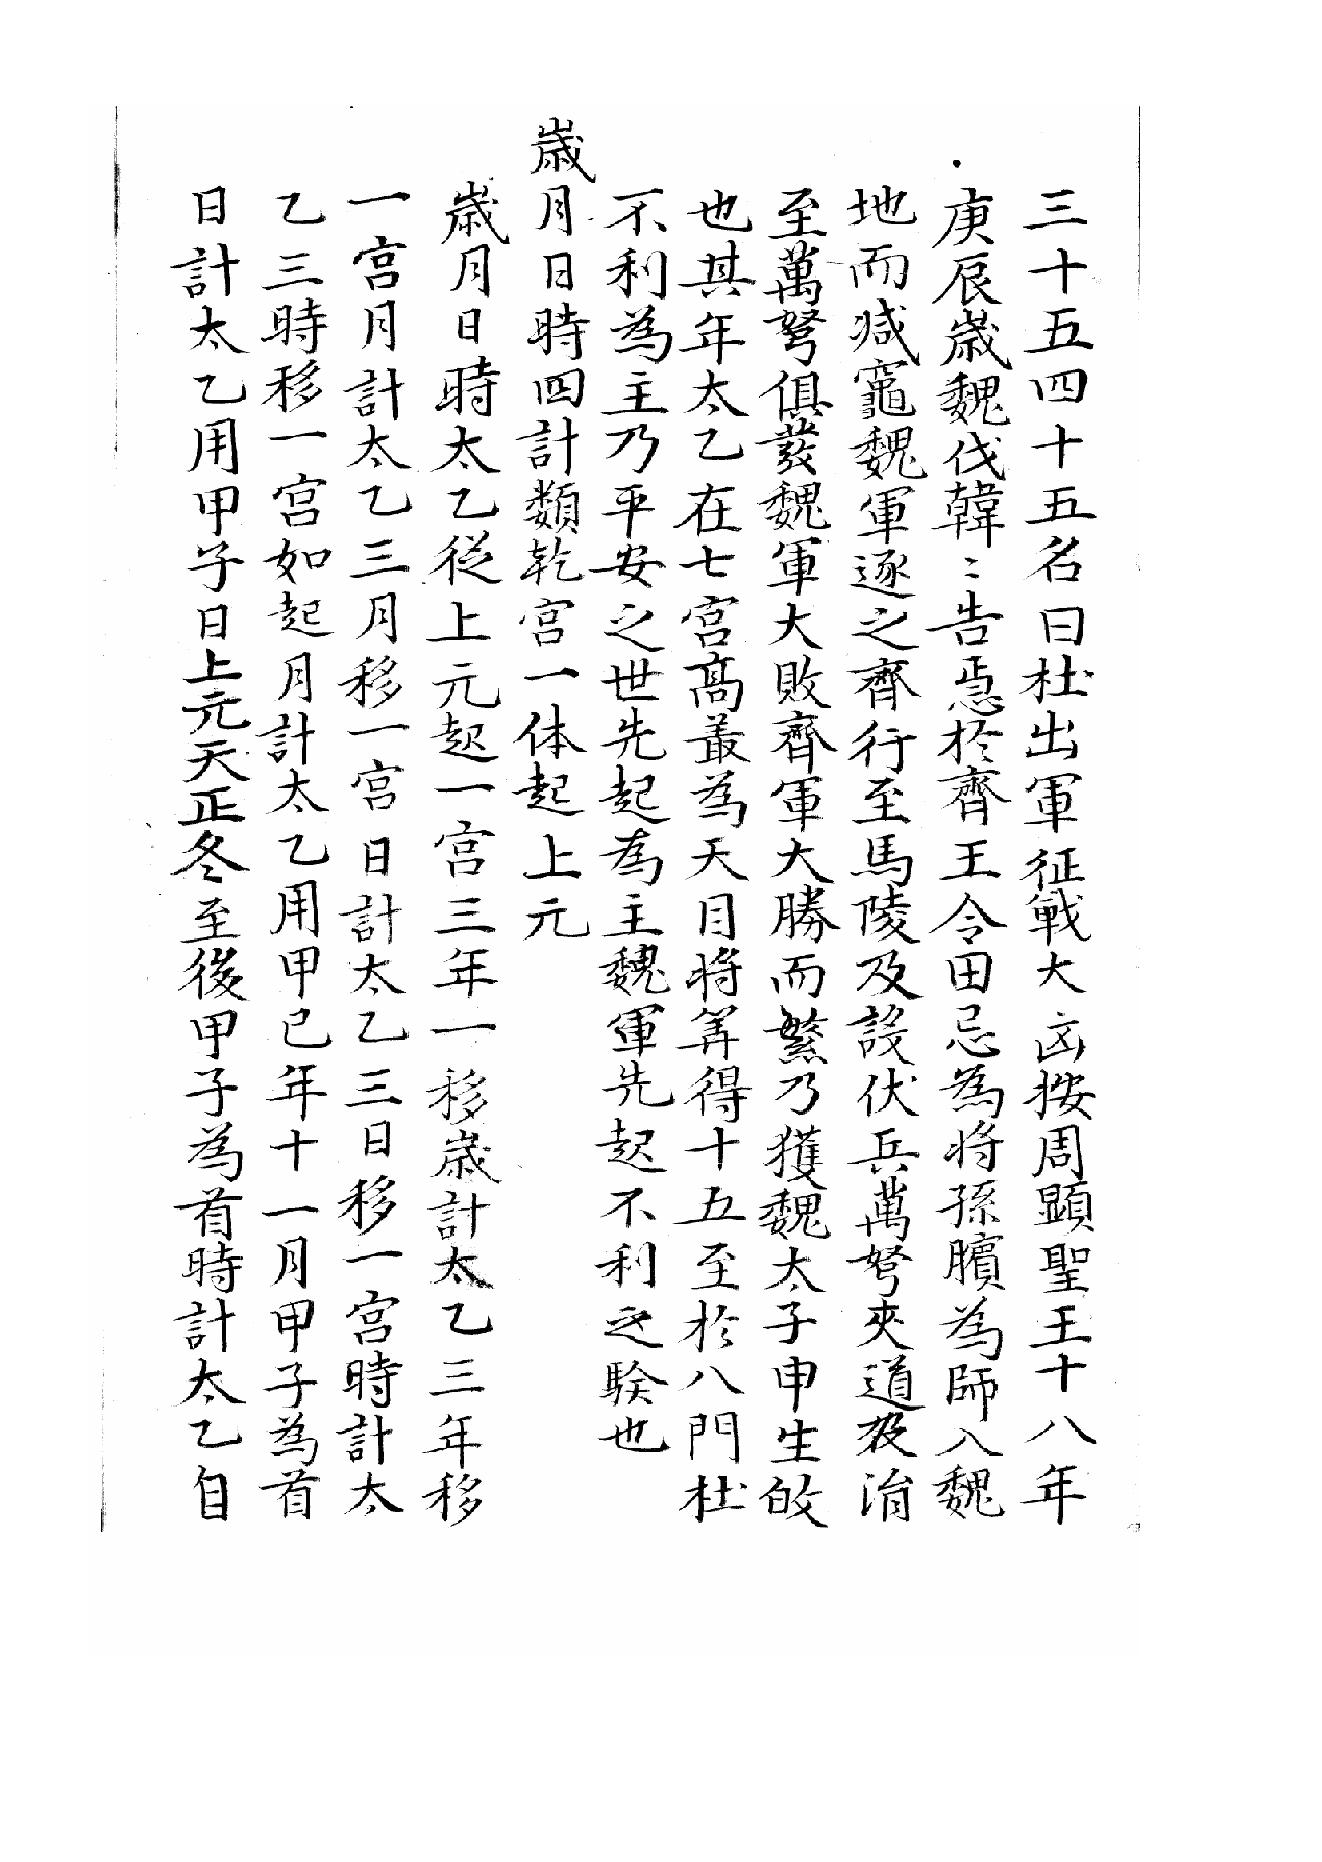 三十五四十五名曰杜出軍征戰大凶按周顯聖王十八年
庚辰歲魏伐韓〻告急於齊王令田忌為將孫臏為師入魏
地而減竈魏軍逐之齊行至馬陵及設伏兵萬弩夾道夜
至萬弩俱發魏軍大敗齊軍大勝而繁乃獲魏太子申生故
也其年太乙在七宮高叢為天目將筭得十五至於八門杜
不利為主乃平安之世先起為主魏軍先起不利之驗也
歲月日時四計類乾宮一体起上元
歲月日時太乙從上元起一宮三年一移歲計太乙三年移
一宮月計太乙三月移一宮日計太乙三日移一宮時計太
乙三時移一宮如起月計太乙用甲己年十一月甲子為首
日計太乙用甲子日上元天正冬至後甲子為首時計太乙自